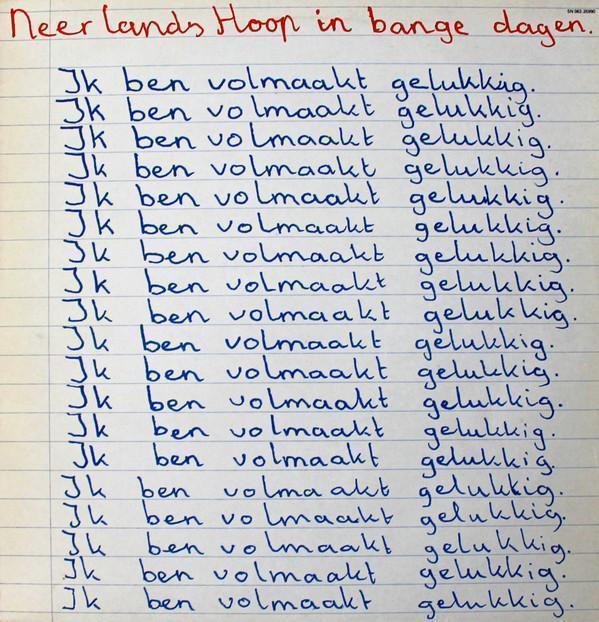 Neerlands Hoop in bange dagen.
Ik ben volmaakt gelukkig.
Ik ben volmaakt gelukkig.
Ik ben volmaakt gelukkig.
Ik ben volmaakt gelukkig.
Ik ben volmaakt gelukkig.
Ik ben volmaakt gelukkig.
Ik ben volmaakt gelukkig.
Ik ben volmaakt gelukkig.
Ik ben volmaakt gelukkig.
Ik ben volmaakt gelukkig.
Ik ben volmaakt gelukkig.
Ik ben volmaakt gelukkig.
Ik ben volmaakt gelukkig.
Ik ben volmaakt gelukkig.
Ik ben volmaakt gelukkig.
Ik ben volmaakt gelukkig.
Ik ben volmaakt gelukkig.
Ik ben volmaakt gelukkig.
Ik ben volmaakt gelukkig.